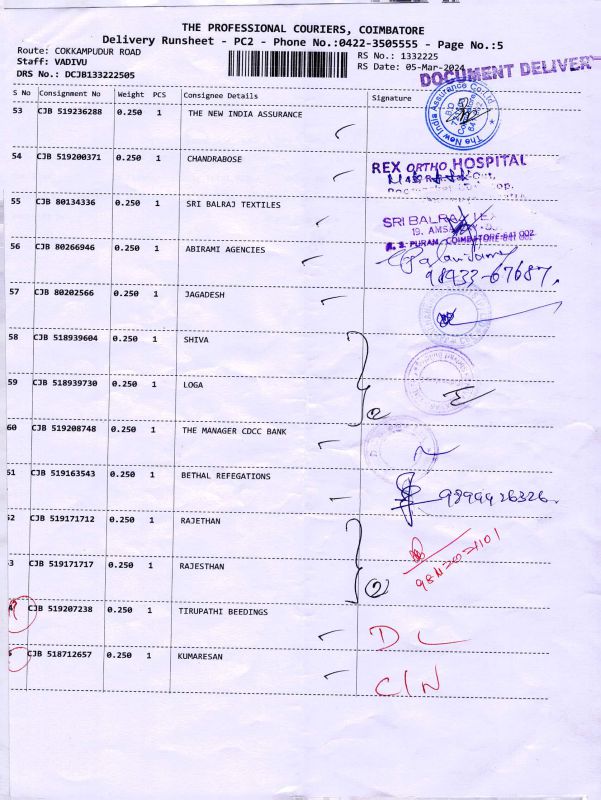 THE PROFESSIONAL COURIERS, COIMBATORE
Delivery Runsheet - PC2 - Phone No.:0422-3505555 - Page No.:5
Route: COKKAMPUDUR ROAD
RS No.: 1332225
Staff: VADIVU
RS Date: 05-Mar-2024
DRS No.: DCJB133222505
DOCUMENT DELIVER
S No Consignment No Weight PCS Consignee Details Signature
53 CJB 519236288 0.250 1 THE NEW INDIA ASSURANCE
The New India Assurance Co. Ltd
54 CJB 519200371 0.250 1 CHANDRABOSE
REX ORTHO HOSPITAL
55 CJB 80134336 0.250 1 SRI BALRAJ TEXTILES
SRI BALRAJ TEX
R. S. PURAM, COIMBATORE-641 002
56 CJB 80266946 0.250 1 ABIRAMI AGENCIES
98933-67687.
57 CJB 80202566 0.250 1 JAGADESH
58 CJB 518939604 0.250 1 SHIVA
59 CJB 518939730 0.250 1 LOGA
2
60 CJB 519208748 0.250 1 THE MANAGER CDCC BANK
61 CJB 519163543 0.250 1 BETHAL REFEGATIONS
9899926326.
52 CJB 519171712 0.250 1 RAJETHAN
3 CJB 519171717 0.250 1 RAJESTHAN
2
CJB 519207238 0.250 1 TIRUPATHI BEEDINGS
DL
CJB 518712657 0.250 1 KUMARESAN
C/N